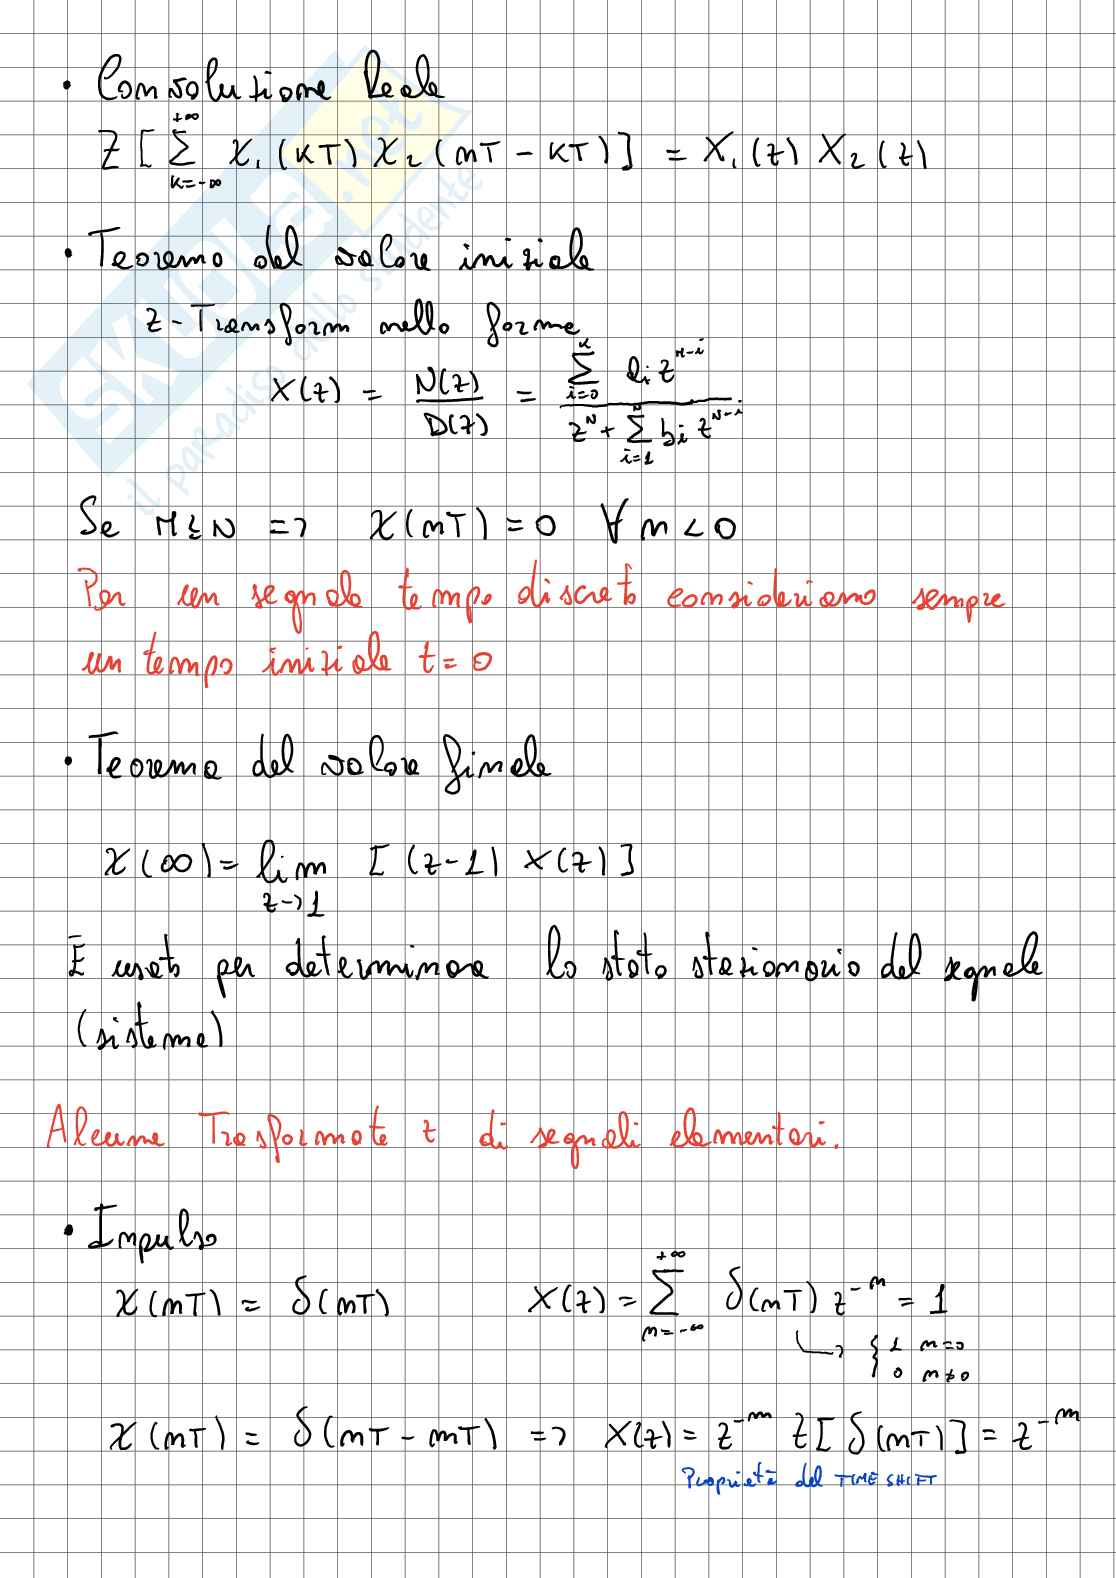 • Convoluzione Reale
Z [ Σ_{k=-∞}^{+∞} x₁(kT) x₂(nT - kT) ] = X₁(z) X₂(z)
• Teorema del valore iniziale
z-Transform nella forma
X(z) = N(z)/D(z) = (Σ_{i=0}^{M} a_i z^{M-i}) / (z^N + Σ_{i=1}^{N} b_i z^{N-i})
Se M ≤ N => x(nT) = 0 ∀ n < 0
Per un segnale tempo discreto consideriamo sempre
un tempo iniziale t = 0
• Teorema del valore finale
x(∞) = lim_{z→1} [ (z-1) X(z) ]
È usato per determinare lo stato stazionario del segnale
(sistema)
Alcune Trasformate z di segnali elementari.
• Impulso
x(nT) = δ(nT) X(z) = Σ_{n=-∞}^{+∞} δ(nT) z^{-n} = 1
↳ { 1 n=0
0 n≠0
x(nT) = δ(nT - mT) => X(z) = z^{-m} Z[δ(nT)] = z^{-m}
Proprietà del TIME SHIFT
SKUOLA.net
il paradiso dello studente